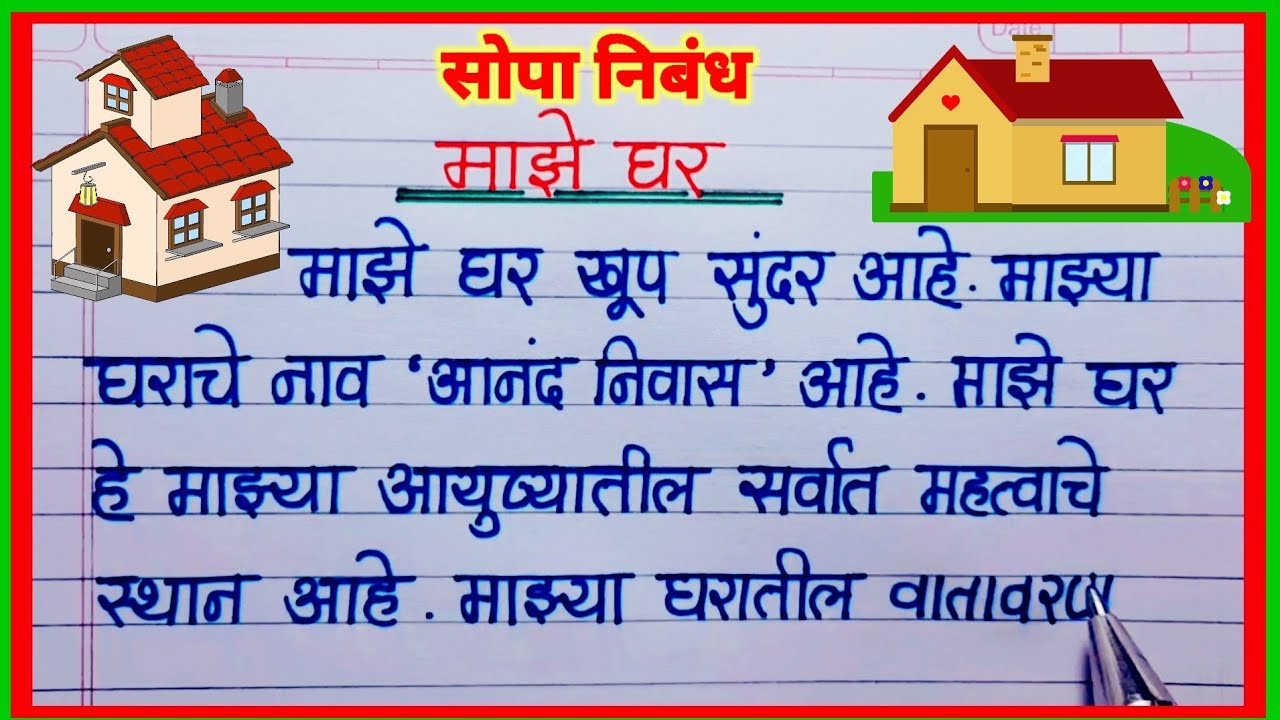 Date
सोपा निबंध
माझे घर
माझे घर खूप सुंदर आहे. माझ्या
घराचे नाव ‘आनंद निवास’ आहे. माझे घर
हे माझ्या आयुष्यातील सर्वात महत्वाचे
स्थान आहे. माझ्या घरातील वातावरण